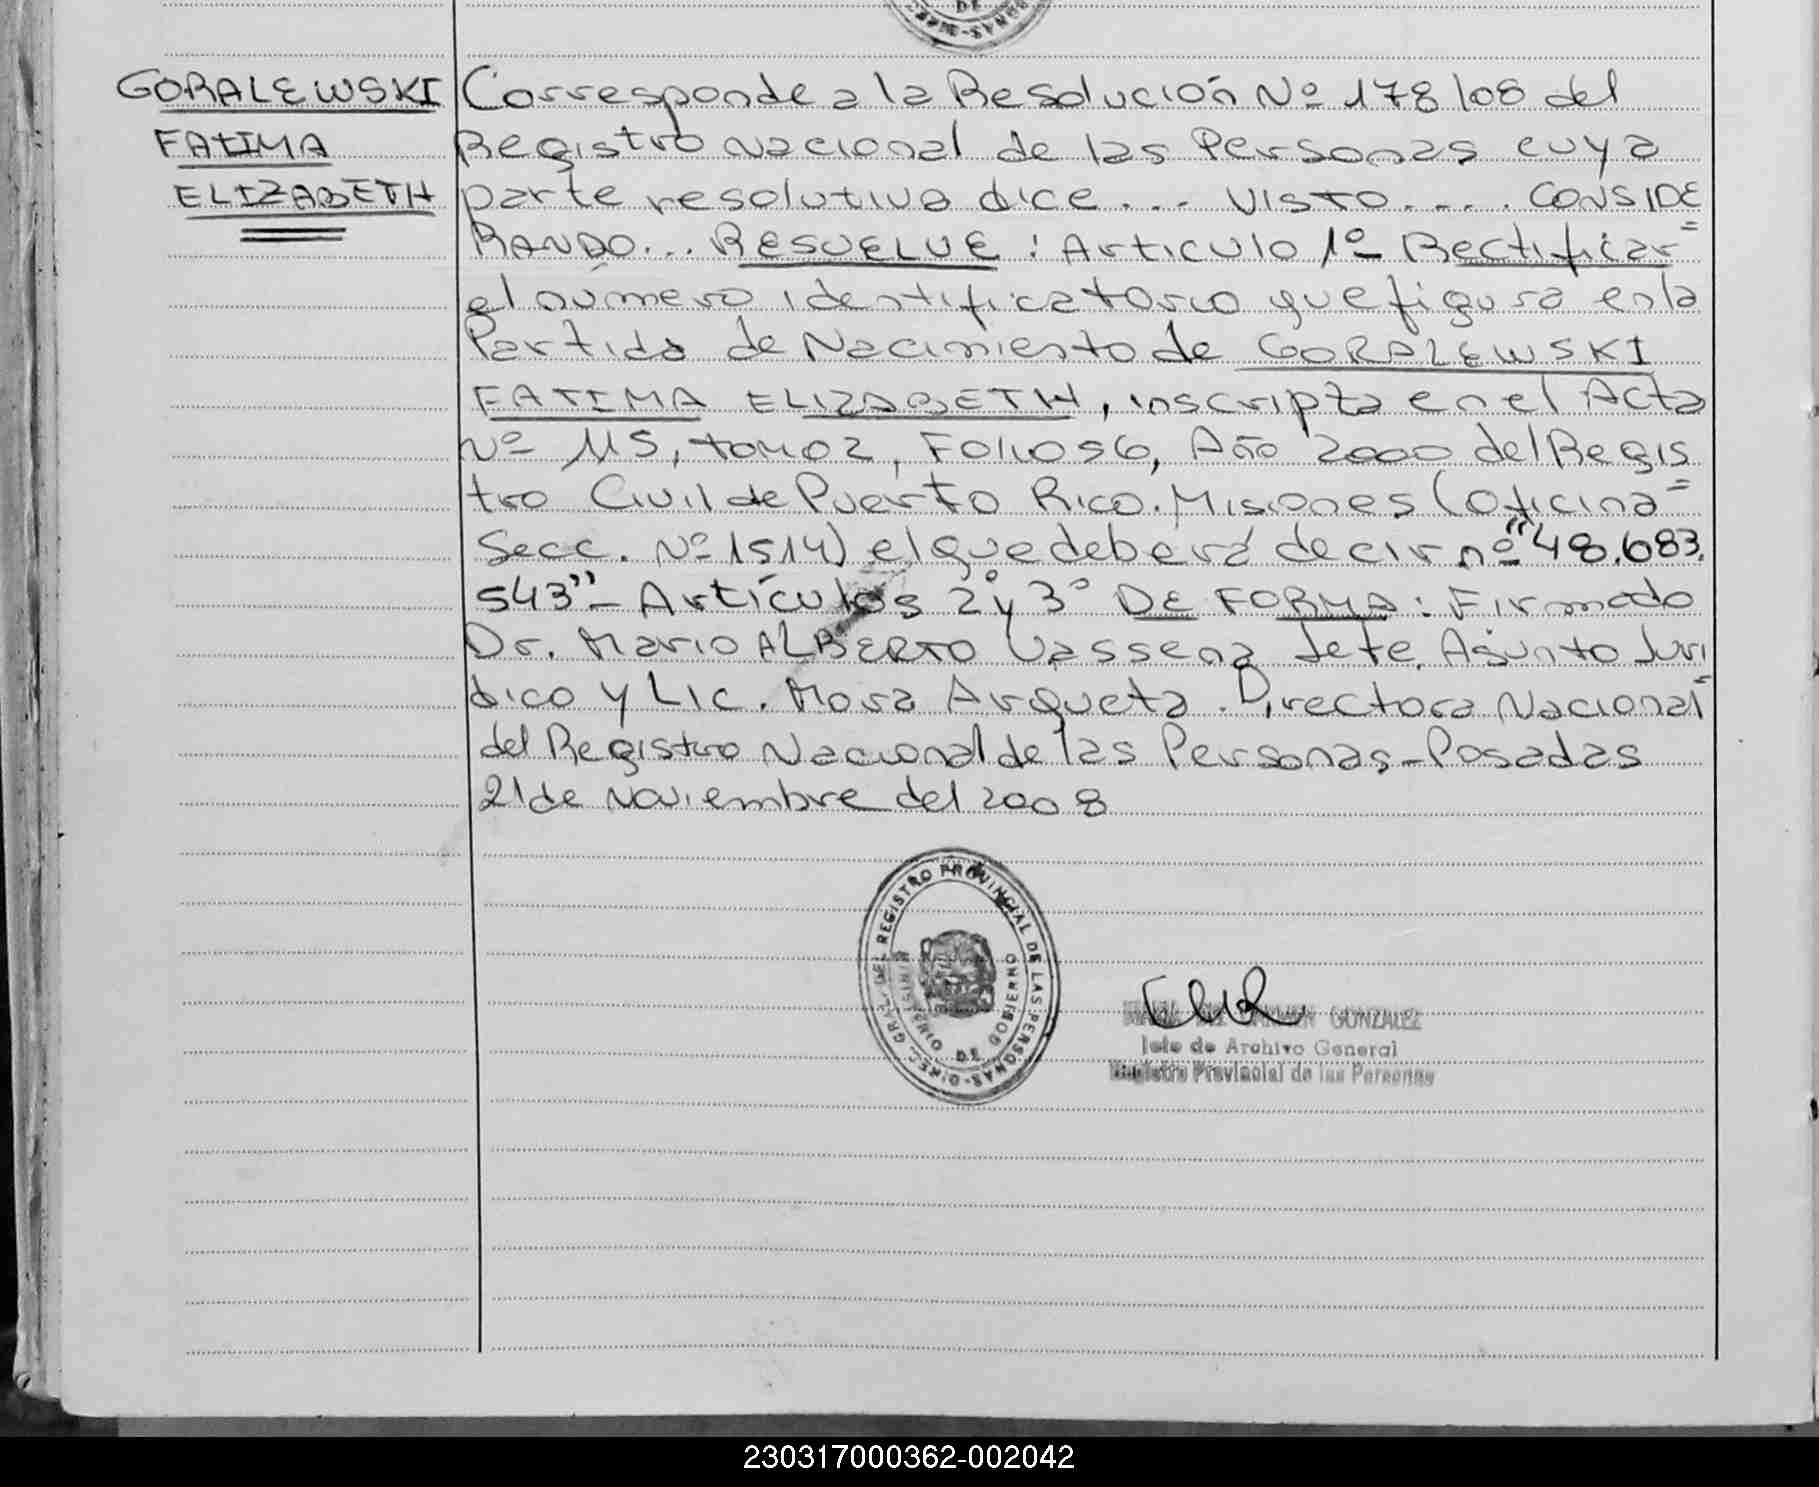 GORALEWSKI
FATIMA
ELIZABETH
Corresponde a la Resolución Nº 178/08 del
Registro Nacional de las Personas cuya
parte resolutiva dice... VISTO.... CONSIDE
RANDO... RESUELVE: Articulo 1º Rectificar
el número identificatorio que figura en la
Partida de Nacimiento de GORALEWSKI
FATIMA ELIZABETH, inscripta en el Acta
Nº 115, tomo 2, Folio 56, Año 2000 del Regis
tro Civil de Puerto Rico. Misiones (Oficina
Secc. Nº 1514) el que deberá decir nº "48.683.
543"- Artículos 2º y 3º DE FORMA: Firmado
Dr. Mario ALBERTO Vassena Jefe. Asunto Juri
dico y Lic. Mora Arqueta. Directora Nacional
del Registro Nacional de las Personas-Posadas
21 de Noviembre del 2008
DIREC. GRAL. DEL REGISTRO PROVINCIAL DE LAS PERSONAS
MINISTERIO DE GOBIERNO
MARIA DEL CARMEN GONZALEZ
Jefe de Archivo General
Registro Provincial de las Personas
230317000362-002042